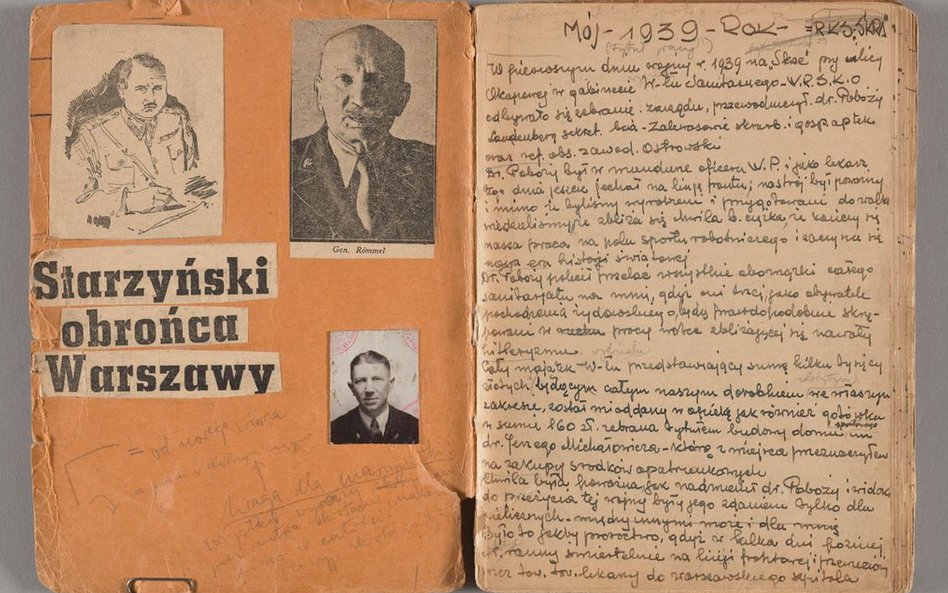 Gen. Rómmel
Starzyński
obrońca
Warszawy
= od nowego wiersza
Uwaga dla maszynistki
Mój - 1939 - Rok -
(tytuł pracy)
W pierwszym dniu wojny r. 1939 na „Skrze" przy ulicy
Okopowej w gabinecie W-łu Sanitarnego - W.R.S.K.O
odbywało się zebranie zarządu, przewodniczył dr. Poboży
Landenberg sekret. bcia - Zalcwasowie skarb. i gosp. aptek
oraz ref. obs. zawod. Ostrowski
Dr. Poboży był w mundurze oficera W.P. i jako lekarz
tego dnia jeszcze jechał na linję frontu; nastrój był poważny
mimo iż byliśmy wyrobieni i przygotowani do walk
wiedzieliśmy iż zbliża się chwila b. ciężka, iż kończy się
nasza praca na polu sportu robotniczego i zaczyna się
nowa era historji światowej
Dr. Poboży polecił przelać wszystkie obowiązki całego
sanitarjatu na mnie, gdyż oni trzej, jako obywatele
pochodzenia żydowskiego, będą prawdopodobnie skrę-
powani w pracy wobec zbliżającej się nawały
hitleryzmu.
Cały majątek W-łu przedstawiający sumę kilku tysięcy
złotych, będącym całym naszym dorobkiem we własnym
zakresie, został mi oddany w opiekę jak również gotówka
w sumie 860 zł. zebrana tytułem budowy domu sportowego im
dr. Jerzego Michałowicza - którą z miejsca przeznaczyłem
na zakupy środków opatrunkowych
Chwila była poważna, jak nadmienił dr. Poboży i widok
do przeżycia tej wojny były jego zdaniem tylko dla
nielicznych - między innymi może i dla mnie
było to jakby proroctwo, gdyż w kilka dni później
dr. ranny śmiertelnie na linji frontowej i przewieziony
przez tow. tow. lekarzy do warszawskiego szpitala